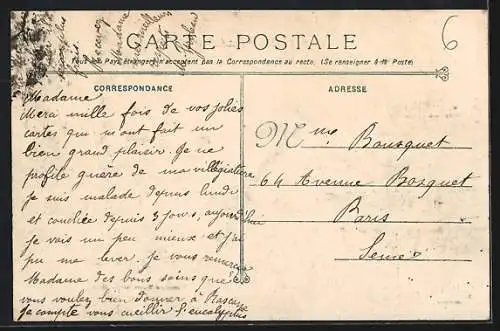 CARTE POSTALE
Tous les Pays étrangers n'acceptent pas la Correspondance au recto. (Se renseigner à la Poste)
CORRESPONDANCE
Madame
Merci mille fois de vos jolies
cartes qui m'ont fait un
bien grand plaisir. Je ne
profite guère de ma villégiature
je suis malade depuis lundi
et couchée depuis 3 jours, aujourd'hui
je vais un peu mieux et j'ai
pu me lever. je vous remercie
Madame des bons soins que
vous voulez bien donner à
je compte vous cueillir l'eucalyptus
ADRESSE
Mme Bousquet
64 Avenue Bosquet
Paris
Seine
6